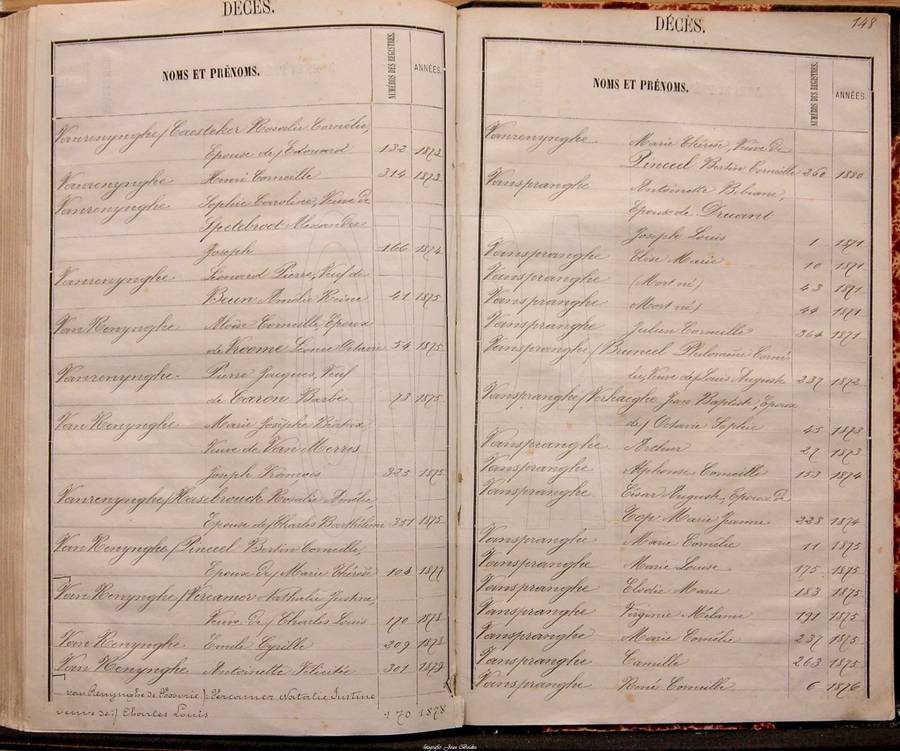 DÉCÈS.
NOMS ET PRÉNOMS. NUMÉROS DES REGISTRES. ANNÉES.
Vanrenynghe / Caesteker Rosalie Cornélie,
Epouse de / Edouard 132 1872
Vanrenynghe Henri Corneille 314 1873
Vanrenynghe Sophie Caroline, Veuve de
Spetebroot Alexandre
Joseph 166 1874
Vanrenynghe Léonard Pierre, Veuf de
Beun Amélie Reine 41 1875
Van Renynghe Aloïse Corneille, Epoux
de Vroome Léonie Octavie 54 1875
Vanrenynghe Pierre Jacques, Veuf
de Caron Barbe 73 1875
Van Renynghe Marie Josèphe
Veuve de Van Merris
Joseph François 325 1875
Vanrenynghe / Hasebrouck Rosalie Amélie,
Epouse de / Charles Barthélémi 351 1875
Van Renynghe / Pinceel Bertin Corneille,
Epoux de / Marie Thérèse 104 1877
Van Renynghe / Vercamer Nathalie Justine,
Veuve de / Charles Louis 170 1878
Van Renynghe Emile Cyrille 209 1878
Van Renynghe Antoinette Félicité 301 1879
van Renynghe de /: Vercamer Natalie Justine
veuve de :/ Charles Louis 170 1878
DÉCÈS. 148
NOMS ET PRÉNOMS. NUMÉROS DES REGISTRES. ANNÉES.
Vanrenynghe Marie Thérèse, Veuve de
Pinceel Bertin Corneille 260 1880
Vanspranghe Antoinette Bibiane,
Epoux de Druant
Joseph Louis 1 1871
Vanspranghe Elise Marie 10 1871
Vanspranghe (Mort né) 43 1871
Vanspranghe Mort né) 44 1871
Vanspranghe Julien Corneille 364 1871
Vanspranghe / Bruneel Philomène Corné
lie, Veuve de / Louis Auguste 237 1872
Vanspranghe / Verhaeghe Jean Baptiste, Epoux
de / Octavie Sophie 45 1873
Vanspranghe Arthur 27 1873
Vanspranghe Alphonse Corneille 153 1874
Vanspranghe César Auguste, Epoux de
Top Marie Jeanne 228 1874
Vanspranghe Marie Cornélie 11 1875
Vanspranghe Marie Louise 175 1875
Vanspranghe Elodie Marie 183 1875
Vanspranghe Virginie Mélanie 191 1875
Vanspranghe Marie Cornélie 237 1875
Vanspranghe Camille 263 1875
Vanspranghe René Corneille 6 1876